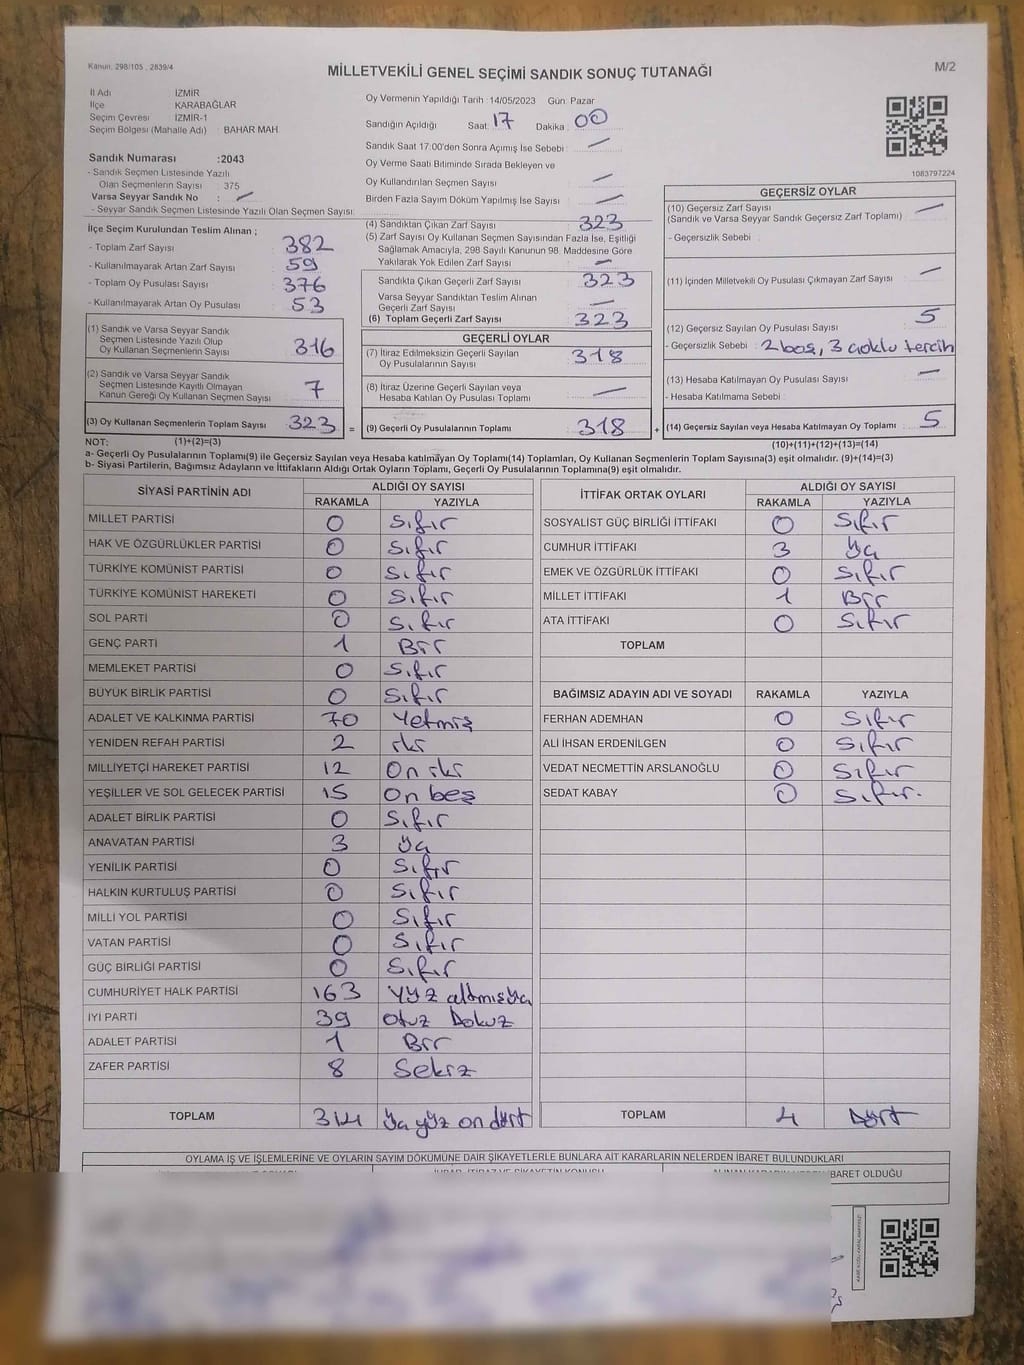 Kanun, 298/105 , 2839/4
MİLLETVEKİLİ GENEL SEÇİMİ SANDIK SONUÇ TUTANAĞI
M/2
İl Adı İZMİR
İlçe KARABAĞLAR
Seçim Çevresi İZMİR-1
Seçim Bölgesi (Mahalle Adı) : BAHAR MAH
Sandık Numarası :2043
- Sandık Seçmen Listesinde Yazılı
Olan Seçmenlerin Sayısı : 375
Varsa Seyyar Sandık No : —
- Seyyar Sandık Seçmen Listesinde Yazılı Olan Seçmen Sayısı:
Oy Vermenin Yapıldığı Tarih :14/05/2023 Gün: Pazar
Sandığın Açıldığı Saat: 17 Dakika : 00
Sandık Saat 17:00'den Sonra Açımış İse Sebebi : —
Oy Verme Saati Bitiminde Sırada Bekleyen ve
Oy Kullandırılan Seçmen Sayısı —
Birden Fazla Sayım Döküm Yapılmış İse Sayısı : —
1083797224
İlçe Seçim Kurulundan Teslim Alınan ;
- Toplam Zarf Sayısı : 382
- Kullanılmayarak Artan Zarf Sayısı : 59
- Toplam Oy Pusulası Sayısı : 376
- Kullanılmayarak Artan Oy Pusulası : 53
(1) Sandık ve Varsa Seyyar Sandık
Seçmen Listesinde Yazılı Olup
Oy Kullanan Seçmenlerin Sayısı : 316
(2) Sandık ve Varsa Seyyar Sandık
Seçmen Listesinde Kayıtlı Olmayan
Kanun Gereği Oy Kullanan Seçmen Sayısı : 7
(3) Oy Kullanan Seçmenlerin Toplam Sayısı : 323 =
(4) Sandıktan Çıkan Zarf Sayısı : 323
(5) Zarf Sayısı Oy Kullanan Seçmen Sayısından Fazla İse, Eşitliği
Sağlamak Amacıyla, 298 Sayılı Kanunun 98. Maddesine Göre
Yakılarak Yok Edilen Zarf Sayısı : —
Sandıkta Çıkan Geçerli Zarf Sayısı : 323
Varsa Seyyar Sandıktan Teslim Alınan
Geçerli Zarf Sayısı : —
(6) Toplam Geçerli Zarf Sayısı : 323
GEÇERLİ OYLAR
(7) İtiraz Edilmeksizin Geçerli Sayılan
Oy Pusulalarının Sayısı : 318
(8) İtiraz Üzerine Geçerli Sayılan veya
Hesaba Katılan Oy Pusulası Toplamı : —
(9) Geçerli Oy Pusulalarının Toplamı : 318 +
GEÇERSİZ OYLAR
(10) Geçersiz Zarf Sayısı
(Sandık ve Varsa Seyyar Sandık Geçersiz Zarf Toplamı) : —
- Geçersizlik Sebebi :
(11) İçinden Milletvekili Oy Pusulası Çıkmayan Zarf Sayısı : —
(12) Geçersiz Sayılan Oy Pusulası Sayısı : 5
- Geçersizlik Sebebi : 2 boş, 3 çoklu tercih
(13) Hesaba Katılmayan Oy Pusulası Sayısı : —
- Hesaba Katılmama Sebebi :
(14) Geçersiz Sayılan veya Hesaba Katılmayan Oy Toplamı : 5
NOT: (1)+(2)=(3) (10)+(11)+(12)+(13)=(14)
a- Geçerli Oy Pusulalarının Toplamı(9) ile Geçersiz Sayılan veya Hesaba katılmayan Oy Toplamı(14) Toplamları, Oy Kullanan Seçmenlerin Toplam Sayısına(3) eşit olmalıdır. (9)+(14)=(3)
b- Siyasi Partilerin, Bağımsız Adayların ve İttifakların Aldığı Ortak Oyların Toplamı, Geçerli Oy Pusulalarının Toplamına(9) eşit olmalıdır.
SİYASİ PARTİNİN ADI ALDIĞI OY SAYISI
RAKAMLA YAZIYLA
MİLLET PARTİSİ 0 Sıfır
HAK VE ÖZGÜRLÜKLER PARTİSİ 0 Sıfır
TÜRKİYE KOMÜNİST PARTİSİ 0 Sıfır
TÜRKİYE KOMÜNİST HAREKETİ 0 Sıfır
SOL PARTİ 0 Sıfır
GENÇ PARTİ 1 Bir
MEMLEKET PARTİSİ 0 Sıfır
BÜYÜK BİRLİK PARTİSİ 0 Sıfır
ADALET VE KALKINMA PARTİSİ 70 Yetmiş
YENİDEN REFAH PARTİSİ 2 iki
MİLLİYETÇİ HAREKET PARTİSİ 12 On iki
YEŞİLLER VE SOL GELECEK PARTİSİ 15 On beş
ADALET BİRLİK PARTİSİ 0 Sıfır
ANAVATAN PARTİSİ 3 Üç
YENİLİK PARTİSİ 0 Sıfır
HALKIN KURTULUŞ PARTİSİ 0 Sıfır
MİLLİ YOL PARTİSİ 0 Sıfır
VATAN PARTİSİ 0 Sıfır
GÜÇ BİRLİĞİ PARTİSİ 0 Sıfır
CUMHURİYET HALK PARTİSİ 163 Yüz altmış üç
İYİ PARTİ 39 Otuz Dokuz
ADALET PARTİSİ 1 Bir
ZAFER PARTİSİ 8 Sekiz
TOPLAM 314 Üç yüz on dört
İTTİFAK ORTAK OYLARI ALDIĞI OY SAYISI
RAKAMLA YAZIYLA
SOSYALİST GÜÇ BİRLİĞİ İTTİFAKI 0 Sıfır
CUMHUR İTTİFAKI 3 Üç
EMEK VE ÖZGÜRLÜK İTTİFAKI 0 Sıfır
MİLLET İTTİFAKI 1 Bir
ATA İTTİFAKI 0 Sıfır
TOPLAM
BAĞIMSIZ ADAYIN ADI VE SOYADI RAKAMLA YAZIYLA
FERHAN ADEMHAN 0 Sıfır
ALİ İHSAN ERDENİLGEN 0 Sıfır
VEDAT NECMETTİN ARSLANOĞLU 0 Sıfır
SEDAT KABAY 0 Sıfır.
TOPLAM 4 Dört
OYLAMA İŞ VE İŞLEMLERİNE VE OYLARIN SAYIM DÖKÜMÜNE DAİR ŞİKAYETLERLE BUNLARA AİT KARARLARIN NELERDEN İBARET BULUNDUKLARI
İBARET OLDUĞU